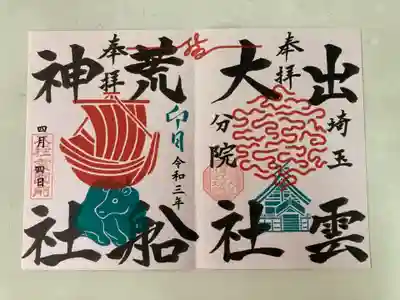 出雲
埼玉
奉拝
大社
分院
結
荒船
卯月
令和三年
奉拝
神社
四月四日